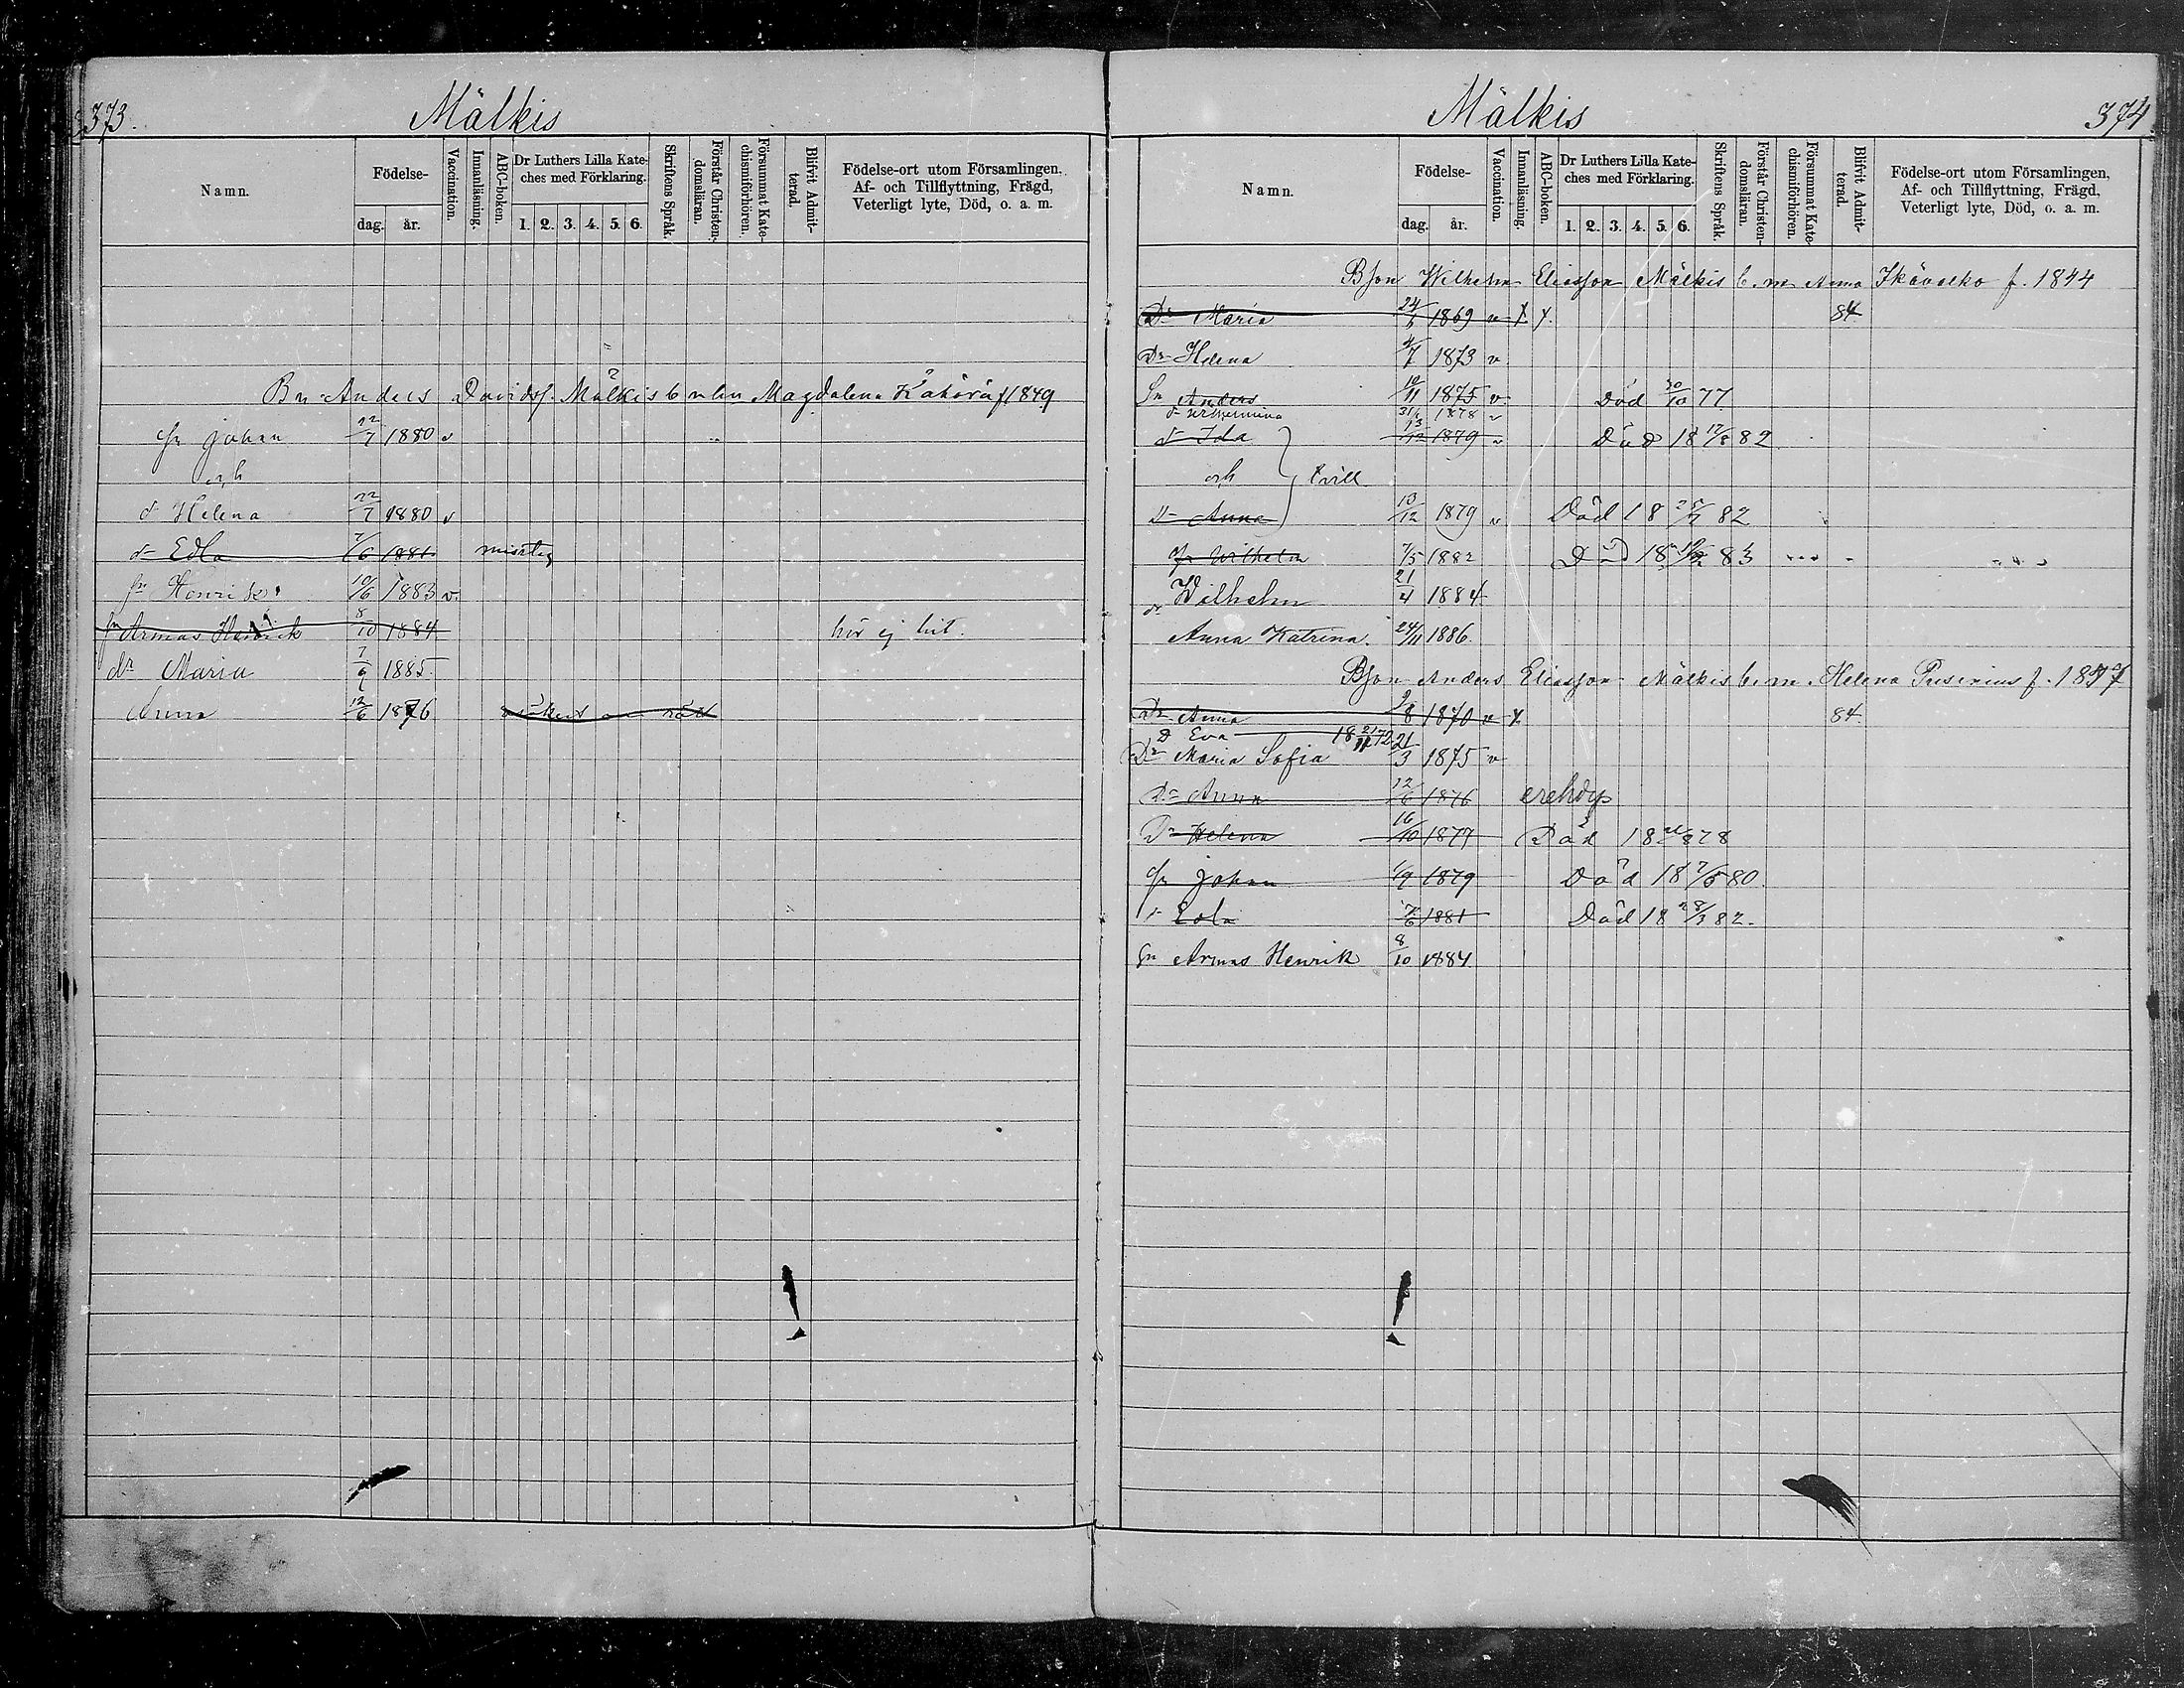 373.
Mälkis
Namn.
Födelse-
dag. år.
Vaccination.
Innanläsning.
ABC-boken.
Dr Luthers Lilla Kate-
ches med Förklaring.
1. 2. 3. 4. 5. 6.
Skriftens Språk.
Förstår Christen-
domsläran.
Försummat Kate-
chismiförhören.
Blifvit Admit-
terad.
Födelse-ort utom Församlingen,
Af- och Tillflyttning, Frägd,
Veterligt lyte, Död, o. a. m.
Bn Anders Davidsf. Mälkis Magdalena f 1849
Sn Johan 22/7 1880 v
och
d- Helena 22/7 1880 v
d- Edla 7/6 1881 misstag
Sn Henrik 10/6 1883 v.
Sn Armas Henrik 8/10 1884 hör ej hit.
dr Maria 7/9 1885.
Anna 12/6 1876
Mälkis
374
Namn.
Födelse-
dag. år.
Vaccination.
Innanläsning.
ABC-boken.
Dr Luthers Lilla Kate-
ches med Förklaring.
1. 2. 3. 4. 5. 6.
Skriftens Språk.
Förstår Christen-
domsläran.
Försummat Kate-
chismiförhören.
Blifvit Admit-
terad.
Födelse-ort utom Församlingen,
Af- och Tillflyttning, Frägd,
Veterligt lyte, Död, o. a. m.
Bson Wilhelm Eliasson Mälkis b. m. Anna Ikävalko f. 1844
Dr Maria 24/6 1869 v 84.
Dr Helena 4/7 1873 v
Sn Anders 10/11 1875 v Död 30/10 77
1878 v
d Ida 13/12 1879 v Död 18 17/8 82
och tvill
D- Anna 13/12 1879 v Död 18 82
Sn Wilhelm 7/5 1882 Död 18 83
Wilhelm 21/4 1884
dr
Anna Katrina. 24/11 1886.
Bson Anders Eliasson Mälkis b. m. Helena Pusenius f.
Dr Anna 2/8 1870 v 84.
D Eva 18 21/11 72
Dr Maria Sofia 21/3 1875 v
Dr Anna 12/6 1876 erehdys
Dr Helena 16/10 1877 Död 18 78
Sn Johan 1/9 1879 Död 18 7/5 80
d- Edla 7/6 1881 Död 18 28/3 82.
Sn Armas Henrik 8/10 1884